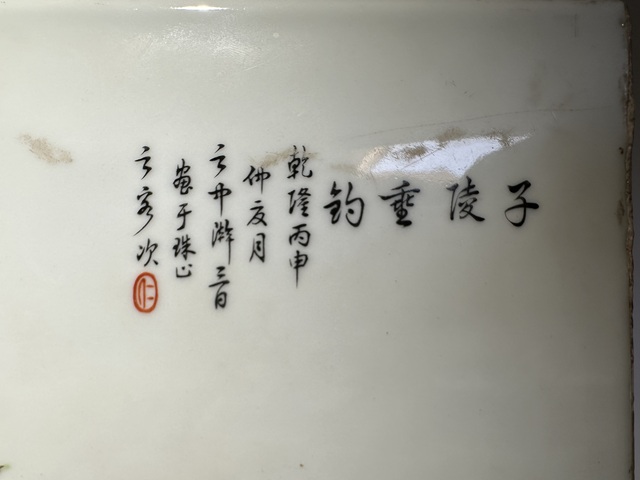 子陵垂釣
乾隆丙申
仲夏月
之中澣三日
畫于珠山
之客次